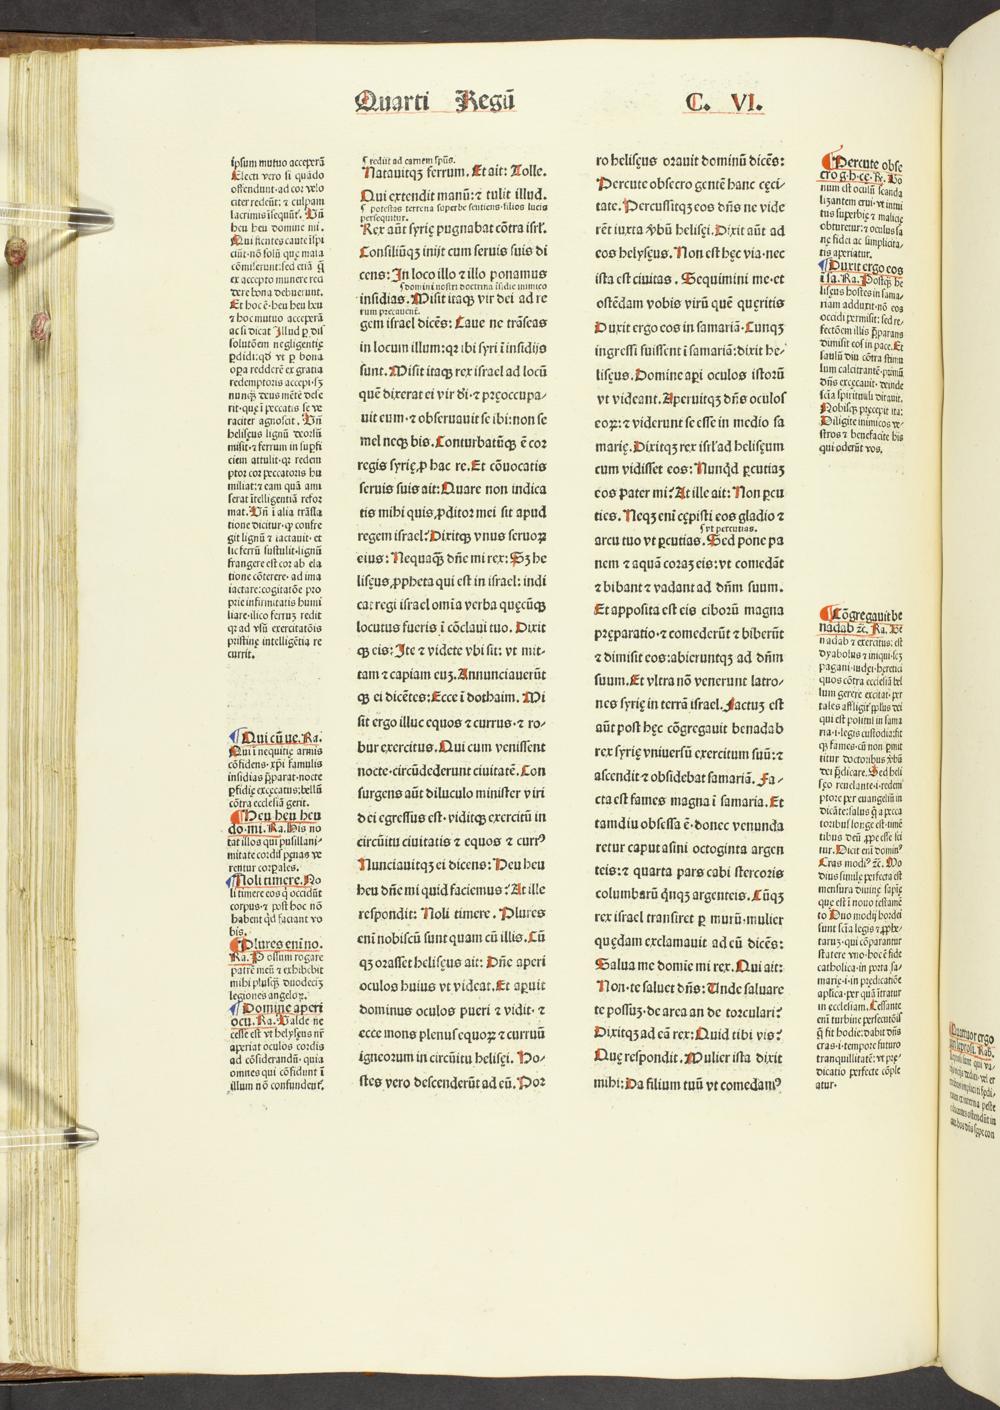 Quarti Regū
C. VI.
ipsum mutuo acceperā
Electi vero si quādo
offendunt·ad cor velo
citer redeūt: ⁊ culpam
lacrimis īsequūt᷒. Vñ
heu heu domine mi.
Qui flentes caute īspi
ciūt·nō solū que mala
cōmiserunt:sed etiā q̄
ex accepto munere reci
dere bona debuerunt.
Et hoc ē·heu heu heu
⁊ hoc mutuo acceperā
ac si dicat Illud ꝑ dis
solutōem negligentię
ꝑdidi:qd̄ vt ꝑ bona
opa redderē ex gratia
redemptoris accepi·sꝫ
nunqꝫ deus mētē dese
rit·que ī peccatis se ve
raciter agnoscit. Vñ
heliseus lignū deorsū
misit·⁊ ferrum in supfi
ciem attulit·qꝛ redem
ptor cor peccatoris hu
miliat:⁊ eam quā ami
serat ītelligentiā refor
mat. Vñ ī alia trāsla
tione dicitur·qꝙ confre
git lignū ⁊ iactauit· et
sic ferrū sustulit·lignū
frangere est cor ab ela
tione cōterere· ad ima
iactare:cogitatōe pro
prie infirmitatis humi
liare·ilico ferruꝫ redit
qꝛ ad vsū exercitatōis
pristinę intelligētia re
currit.
Qui cū ue. Ra.
Qui ī nequitię armis
cōfidens· xp̄i famulis
insidias p̄parat·nocte
ꝑfidię excecatus:bellū
cōtra ecclesiā gerit.
Heu heu heu
do·mi. Ra. His no
tat illos qui pusillani-
mitate cordis penas ve
rentur corꝑales.
Noli timere. No
li timere eos q̄ occidūt
corpus·⁊ post hoc nō
habent qd̄ faciant vo
bis.
Plures eni no.
Ra. Possum rogare
patrē meū ⁊ exhibebit
mihi plusqꝫ duodecim
legiones angeloꝝ.
Domine aperi
ocu. Ra. Valde ne
cesse est vt helyseus nr̄
aperiat oculos cordis
ad cōsiderandū· quia
omnes qui cōfidunt ī
illum nō confundent᷒.
s redijt ad carnem spūs.
Natauitqꝫ ferrum. Et ait: Tolle.
Qui extendit manū: ⁊ tulit illud.
s potestas terrena superbe sentiens·filios lucis
persequitur.
Rex aūt syrię pugnabat cōtra isrl᷒.
Consiliūqꝫ inijt cum seruis suis di
cens: In loco illo ⁊ illo ponamus
s domini nostri doctrina īsidie inimico
insidias. Misit itaqꝫ vir dei ad re
rum precauent.
gem israel dicēs: Caue ne trāseas
in locum illum:qꝛ ibi syri ī insidijs
sunt. Misit itaqꝫ rex israel ad locū
quē dixerat ei vir dī·⁊ pręoccupa-
uit eum·⁊ obseruauit se ibi:non se
mel neqꝫ bis. Conturbatūqꝫ ē cor
regis syrię,ꝓ hac re. Et cōuocatis
seruis suis ait: Quare non indica
tis mihi quis,ꝓditor mei sit apud
regem israel? Dixitqꝫ vnus seruoꝝ
eius: Nequaqꝫ dn̄e mi rex: Sꝫ he
lisęus,ꝓpheta qui est in israel: indi
cat regi israel om̄ia verba quęcūqꝫ
locutus fueris ī cōclaui tuo. Dixit
qꝫ eis: Ite ⁊ videte vbi sit: vt mit-
tam ⁊ capiam euꝫ. Annunciauerūt
qꝫ ei dicētes: Ecce ī dothaim. Mi
sit ergo illuc equos ⁊ currus·⁊ ro-
bur exercitus. Qui cum venissent
nocte·circūdederunt ciuitatē. Con
surgens aūt diluculo minister viri
dei egressus est·viditqꝫ exercitū in
circūitu ciuitatis ⁊ equos ⁊ curr⁹
Nunciauitqꝫ ei dicens: Heu heu
heu dn̄e mi quid faciemus? At ille
respondit: Noli timere. Plures
eni nobiscū sunt quam cū illis. Cū
qꝫ orasset heliseus ait: Dn̄e aperi
oculos huius vt videat. Et apuit
dominus oculos pueri ⁊ vidit·⁊
ecce mons plenus equoꝝ ⁊ curruū
igneorum in circūitu helisęi. Ho-
stes vero descenderūt ad eū. Por
ro helisęus orauit dominū dicēs:
Percute obsecro gentē hanc cęci-
tate. Percussitqꝫ eos dn̄s ne vide
rēt iuxta v̄bū helisęi. Dixit aūt ad
eos helysęus. Non est hęc via·nec
ista est ciuitas. Sequimini me·et
ostēdam vobis virū quē quęritis
Duxit ergo eos in samariā. Cunqꝫ
ingressi fuissent ī samariā:dixit he-
lisęus. Domine aꝑi oculos istorū
vt videant. Aperuitqꝫ dn̄s oculos
eoꝝ: ⁊ viderunt se esse in medio sa
marię. Dixitqꝫ rex isrl᷒ ad helisęum
cum vidisset eos: Nunqd̄ ꝑcutiaꝫ
eos pater mi? At ille ait: Non ꝑcu
ties. Neqꝫ eni cępisti eos gladio ⁊
s vt percutias.
arcu tuo vt ꝑcutias. Sed pone pa
nem ⁊ aquā coraꝫ eis: vt comedāt
⁊ bibant ⁊ vadant ad dn̄m suum.
Et apposita est eis ciborū magna
pręparatio·⁊ comederūt ⁊ biberūt
⁊ dimisit eos:abieruntqꝫ ad dn̄m
suum. Et vltra nō venerunt latro-
nes syrię in terrā israel. Factuꝫ est
aūt post hęc cōgregauit benadab
rex syrię vniuersū exercitum suū: ⁊
ascendit ⁊ obsidebat samariā. Fa-
cta est fames magna ī samaria. Et
tamdiu obsessa ē·donec venunda
retur caput asini octoginta argen
teis: ⁊ quarta pars cabi stercoris
columbarū qnqꝫ argenteis. Cūqꝫ
rex israel transiret ꝑ murū·mulier
quędam exclamauit ad eū dicēs:
Salua me domīe mi rex. Qui ait:
Non·te saluet dn̄s: Unde saluare
te possuꝫ·de area an de torculari?
Dixitqꝫ ad eā rex: Quid tibi vis?
Quę respondit. Mulier ista dixit
mihi: Da filium tuū vt comedam⁹
Percute obse
cro g·h·cę·Ra. Bo
num est oculū scanda
lizantem erui· vt intui
tus superbię ⁊ malicię
obturetur: ⁊ oculus sa
nę fidei ac simplicita-
tis aperiatur.
Duxit ergo eos
ī sa. Ra. Postqꝫ he
lisęus hostes in sama-
riam adduxit·nō eos
occidi permisit: sed re-
fectōem illis p̄parans
dimisit eos in pace. Et
saulū diu cōtra stimu
lum calcitrantē·primū
dn̄s excecauit· deinde
scā spirituali ditauit.
Nobisqꝫ precepit ita:
Diligite inimicos ve-
stros ⁊ benefacite his
qui oderūt vos.
Cōgregauit be
nadab ⁊c. Ra. Be
nadab ⁊ exercitus: est
dyabolus ⁊ iniqui·scꝫ
pagani·iudei·heretici
quos cōtra ecclesiā bel
lum gerere excitat· per
tales affligit ꝓplus dei
qui est positus in sama
ria·i·legis custodia:fit
qꝫ fames·cū non ꝑmit
titur doctoribus v̄bū
dei p̄dicare. Sed heli
sęo reuelante·i·redem
ptore per euangeliū in
dicāte:salus q̄ a pecca
toribus longe est·timē
tibus deū ,ꝓpe esse sci
tur. Dicit eni domin⁹
Cras modi⁹ ⁊c. Mo
dius simile perfecta est
mensura diuine sapię
que est ī nouo testamē
to Duo modij hordei
sunt scīa legis ⁊ ꝓphe-
taruꝫ·qui cōparantur
statere vno·hoc ē fide
catholica·in porta sa-
marię·i·in predicatiōe
aplica·per quā ītratur
in ecclesiam. Cessante
eni turbine persecutōis
q̄ fit hodie: dabit dn̄s
cras·i·tempore futuro
tranquillitatē: vt pre-
dicatio perfecte cōple
atur·
Quatuor ergo